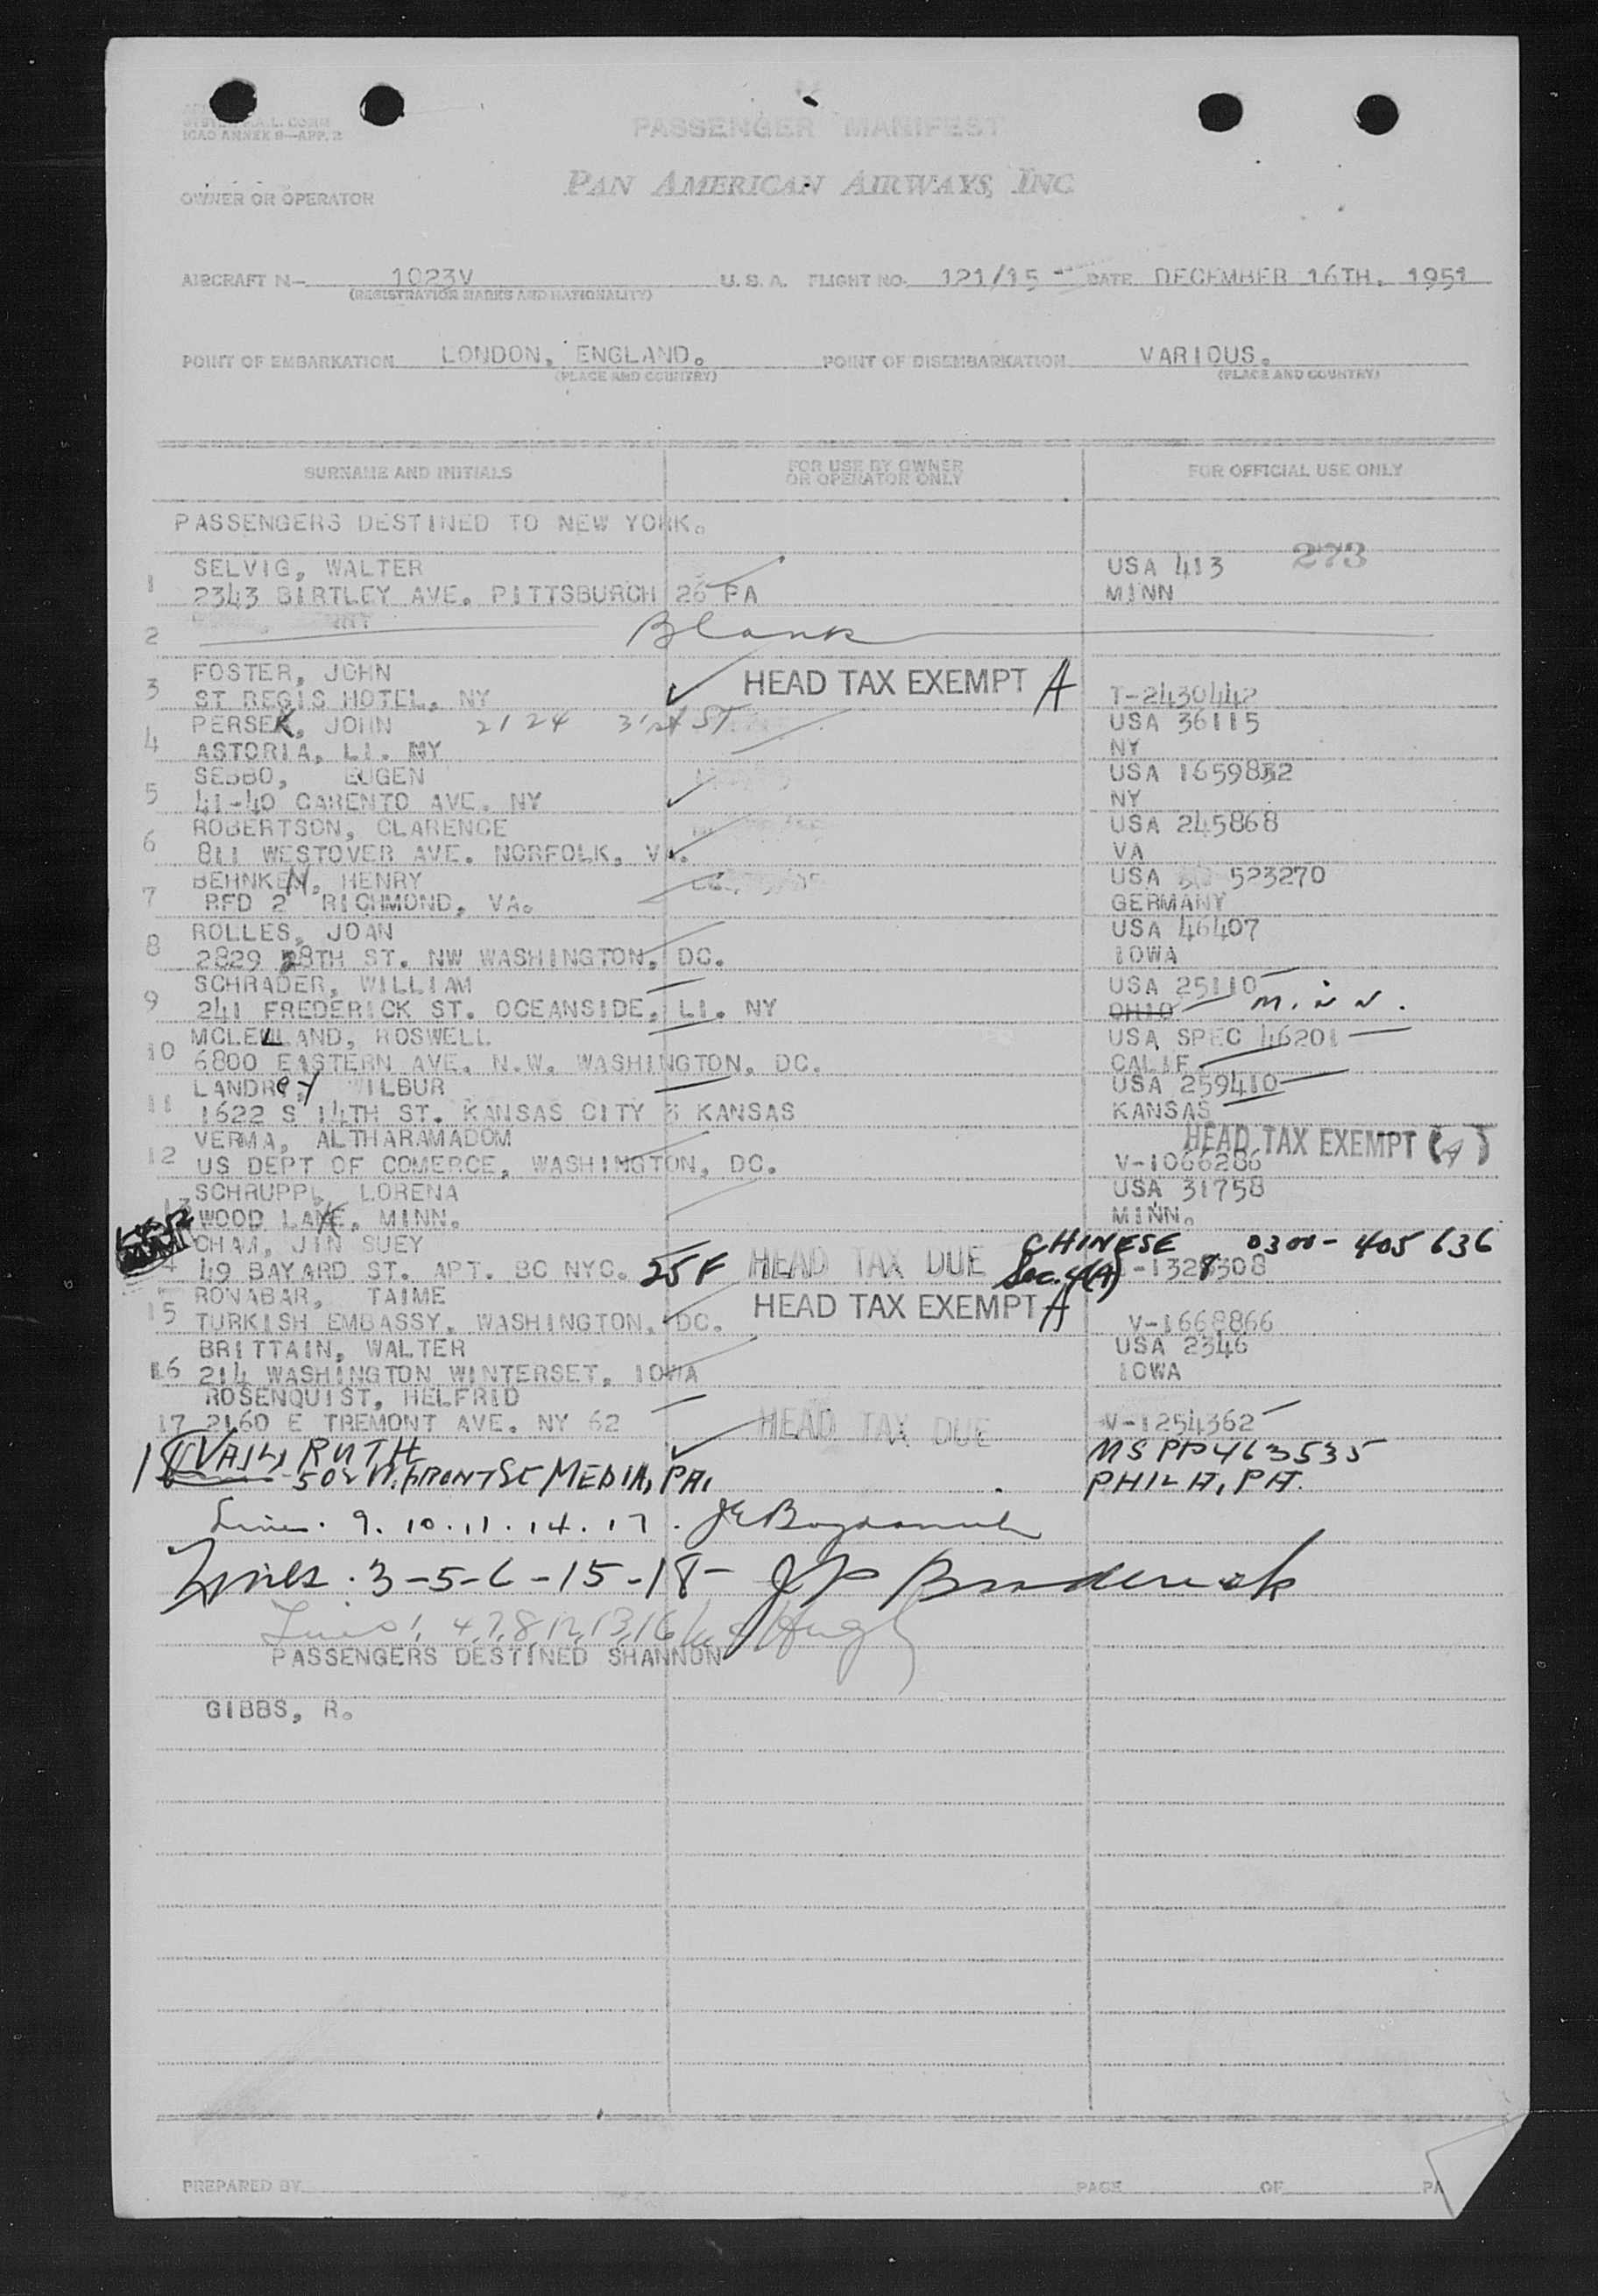 ICAO ANNEX 9—APP. 2
PASSENGER MANIFEST
PAN AMERICAN AIRWAYS, INC
OWNER OR OPERATOR
AIRCRAFT N- 1023V U. S. A. FLIGHT NO. 121/15 DATE DECEMBER 16TH, 1951
(REGISTRATION MARKS AND NATIONALITY)
POINT OF EMBARKATION LONDON, ENGLAND. POINT OF DISEMBARKATION VARIOUS.
(PLACE AND COUNTRY) (PLACE AND COUNTRY)
SURNAME AND INITIALS FOR USE BY OWNER OR OPERATOR ONLY FOR OFFICIAL USE ONLY
PASSENGERS DESTINED TO NEW YORK.
SELVIG, WALTER USA 413 273
1 2343 BIRTLEY AVE. PITTSBURGH 26 PA MINN
2 Blank
FOSTER, JOHN HEAD TAX EXEMPT A
3 ST REGIS HOTEL, NY T-2430442
PERSEK, JOHN 2124 31st ST USA 36115
4 ASTORIA, LI. NY NY
SEBBO, EUGEN USA 1659832
5 41-40 CARENTO AVE. NY NY
ROBERTSON, CLARENCE USA 245868
6 811 WESTOVER AVE. NORFOLK, VA. VA
BEHNKEN, HENRY USA 523270
7 RFD 2 RICHMOND, VA. GERMANY
ROLLES, JOAN USA 46407
8 2829 28TH ST. NW WASHINGTON, DC. IOWA
SCHRADER, WILLIAM USA 25110
9 241 FREDERICK ST. OCEANSIDE, LI. NY OHIO MINN.
MCLELLAND, ROSWELL USA SPEC 46201
10 6800 EASTERN AVE. N.W. WASHINGTON, DC. CALIF
LANDREY WILBUR USA 259410
11 1622 S 14TH ST. KANSAS CITY 3 KANSAS KANSAS
VERMA, ALTHARAMADOM HEAD TAX EXEMPT (A)
12 US DEPT OF COMERCE, WASHINGTON, DC. V-1066286
SCHRUPPL, LORENA USA 31758
13 WOOD LAKE, MINN. MINN.
CHAM, JIN SUEY CHINESE 0300-405636
49 BAYARD ST. APT. BC NYC. 25F HEAD TAX DUE Sec. 4(A) -1328308
RONABAR, TAIME HEAD TAX EXEMPT A
15 TURKISH EMBASSY, WASHINGTON, DC. V-1668866
BRITTAIN, WALTER USA 2346
16 214 WASHINGTON WINTERSET, IOWA IOWA
ROSENQUIST, HELFRID
17 2160 E TREMONT AVE. NY 62 HEAD TAX DUE V-1254362
18 VAIL, RUTH MS PP463535
502 W. FRONT ST MEDIA, PA. PHILA, PA.
Lines. 9. 10. 11. 14. 17.
Lines. 3-5-6-15-18- JP Broderick
Lines 1, 4,7,8,12,13,16
PASSENGERS DESTINED SHANNON
GIBBS, R.
PREPARED BY PAGE OF PA